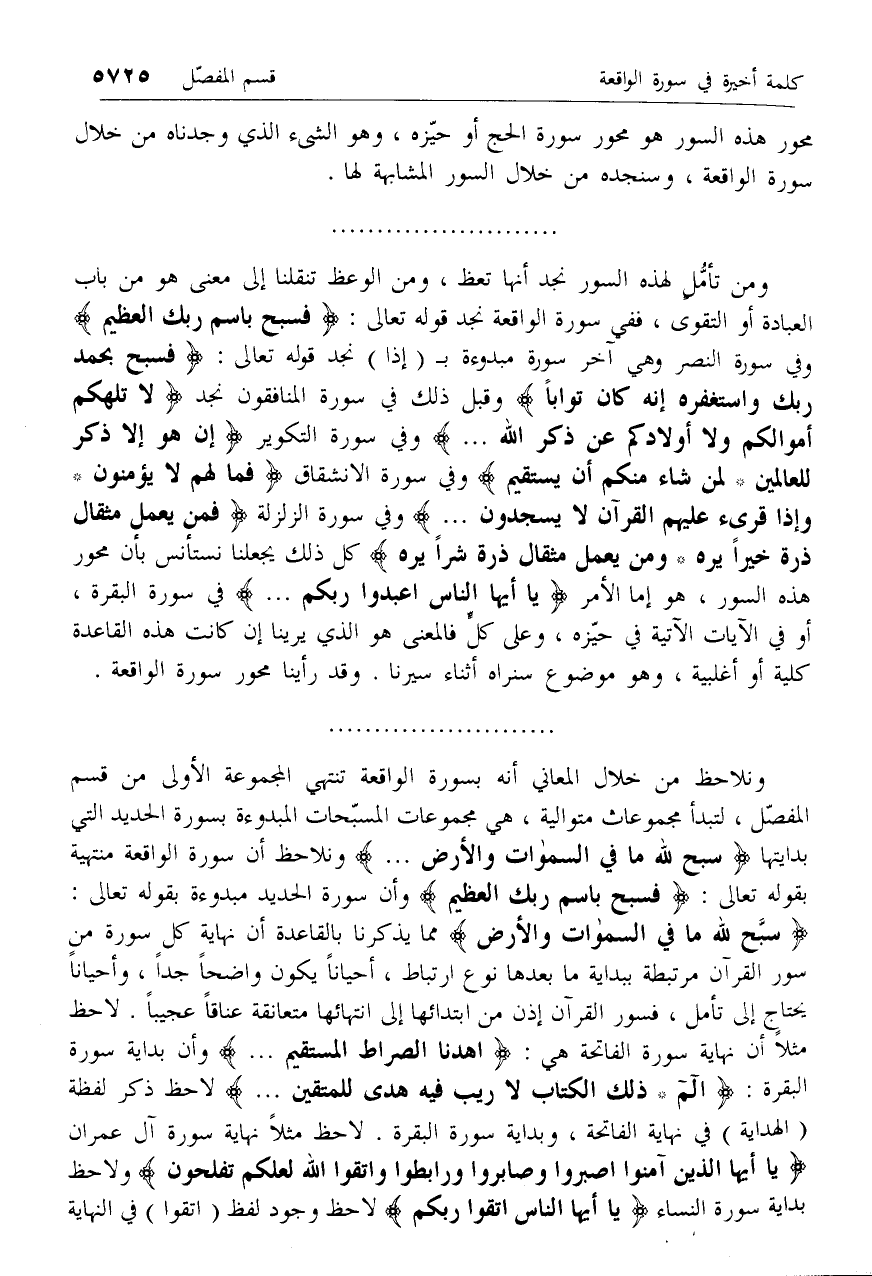 كلمة أخيرة في سورة الواقعة قسم المفصّل ٥٧٢٥
محور هذه السور هو محور سورة الحج أو حيّزه ، وهو الشيء الذي وجدناه من خلال
سورة الواقعة ، وسنجده من خلال السور المشابهة لها .
.........................
ومن تأمُّلٍ لهذه السور نجد أنها تعظ ، ومن الوعظ تنقلنا إلى معنى هو من باب
العبادة أو التقوى ، ففي سورة الواقعة نجد قوله تعالى : ﴿ فسبح باسم ربك العظيم ﴾
وفي سورة النصر وهي آخر سورة مبدوءة بـ ( إذا ) نجد قوله تعالى : ﴿ فسبح بحمد
ربك واستغفره إنه كان تواباً ﴾ وقبل ذلك في سورة المنافقون نجد ﴿ لا تلهكم
أموالكم ولا أولادكم عن ذكر الله ... ﴾ وفي سورة التكوير ﴿ إن هو إلا ذكر
للعالمين * لمن شاء منكم أن يستقيم ﴾ وفي سورة الانشقاق ﴿ فما لهم لا يؤمنون *
وإذا قرىء عليهم القرآن لا يسجدون ... ﴾ وفي سورة الزلزلة ﴿ فمن يعمل مثقال
ذرة خيراً يره * ومن يعمل مثقال ذرة شراً يره ﴾ كل ذلك يجعلنا نستأنس بأن محور
هذه السور ، هو إما الأمر ﴿ يا أيها الناس اعبدوا ربكم ... ﴾ في سورة البقرة ،
أو في الآيات الآتية في حيّزه ، وعلى كلٍّ فالمعنى هو الذي يرينا إن كانت هذه القاعدة
كلية أو أغلبية ، وهو موضوع سنراه أثناء سيرنا . وقد رأينا محور سورة الواقعة .
.........................
ونلاحظ من خلال المعاني أنه بسورة الواقعة تنتهي المجموعة الأولى من قسم
المفصّل ، لتبدأ مجموعاث متوالية ، هي مجموعات المسبّحات المبدوءة بسورة الحديد التي
بدايتها ﴿ سبح لله ما في السمٰوات والأرض ... ﴾ ونلاحظ أن سورة الواقعة منتهية
بقوله تعالى : ﴿ فسبح باسم ربك العظيم ﴾ وأن سورة الحديد مبدوءة بقوله تعالى :
﴿ سبَّح لله ما في السمٰوات والأرض ﴾ مما يذكرنا بالقاعدة أن نهاية كل سورة من
سور القرآن مرتبطة ببداية ما بعدها نوع ارتباط ، أحياناً يكون واضحاً جداً ، وأحياناً
يحتاج إلى تأمل ، فسور القرآن إذن من ابتدائها إلى انتهائها متعانقة عناقاً عجيباً . لاحظ
مثلاً أن نهاية سورة الفاتحة هي : ﴿ اهدنا الصراط المستقيم ... ﴾ وأن بداية سورة
البقرة : ﴿ الٓمٓ * ذلك الكتاب لا ريب فيه هدى للمتقين ... ﴾ لاحظ ذكر لفظة
( الهداية ) في نهاية الفاتحة ، وبداية سورة البقرة . لاحظ مثلاً نهاية سورة آل عمران
﴿ يا أيها الذين آمنوا اصبروا وصابروا ورابطوا واتقوا الله لعلكم تفلحون ﴾ ولاحظ
بداية سورة النساء ﴿ يا أيها الناس اتقوا ربكم ﴾ لاحظ وجود لفظ ( اتقوا ) في النهاية